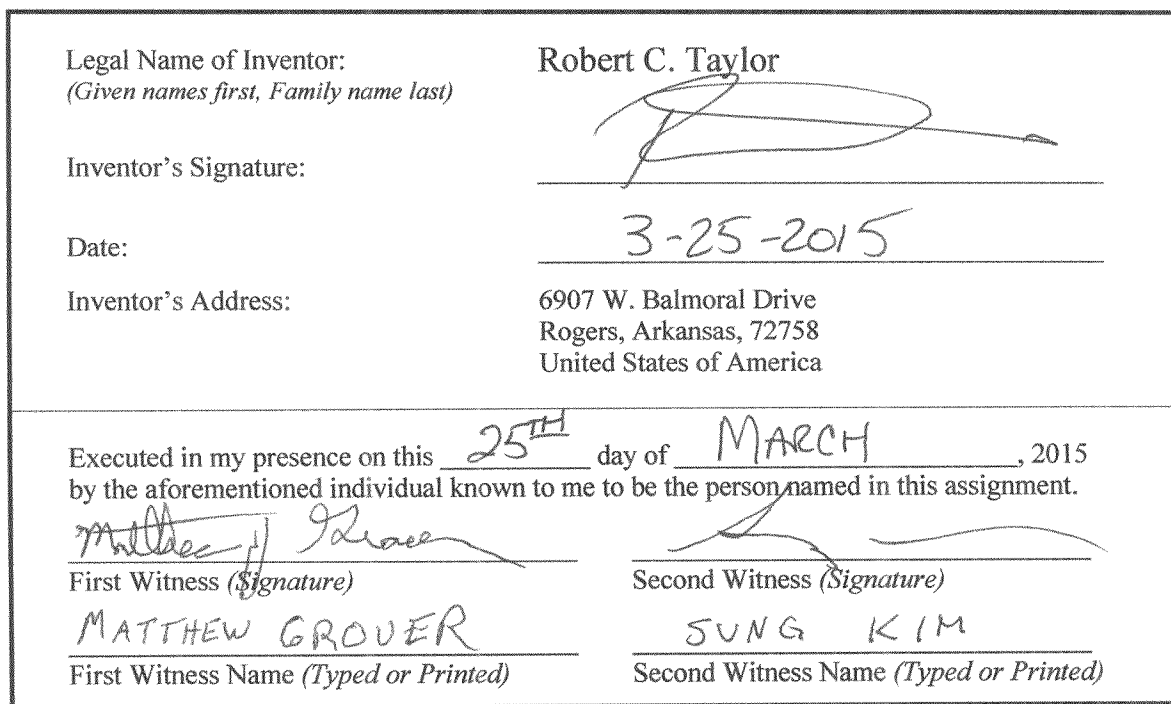 Legal Name of Inventor: Robert C. Taylor
(Given names first, Family name last)
Inventor's Signature:
Date: 3-25-2015
Inventor's Address: 6907 W. Balmoral Drive
Rogers, Arkansas, 72758
United States of America
Executed in my presence on this 25TH day of MARCH, 2015
by the aforementioned individual known to me to be the person named in this assignment.
Matthew J Grover
First Witness (Signature) Second Witness (Signature)
MATTHEW GROVER SUNG KIM
First Witness Name (Typed or Printed) Second Witness Name (Typed or Printed)